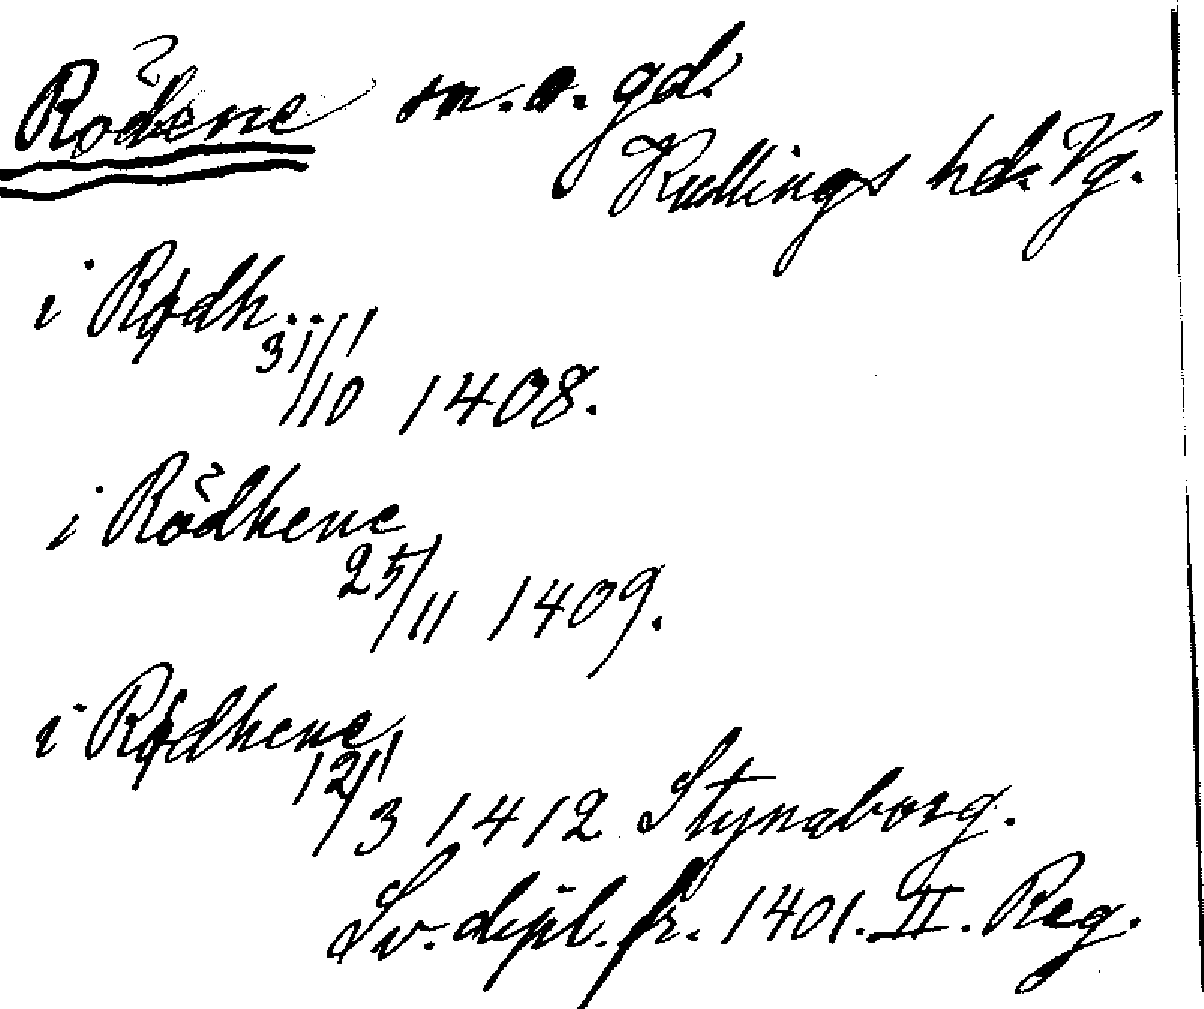 Rödene sn. o. gd.
Kullings hd. Vg.
i Rødh...
31/10 1408.
i Rödhene
25/11 1409.
i Rødhene
12/3 1412 Stynaborg.
Sv. dipl. fr. 1401. II. Reg.